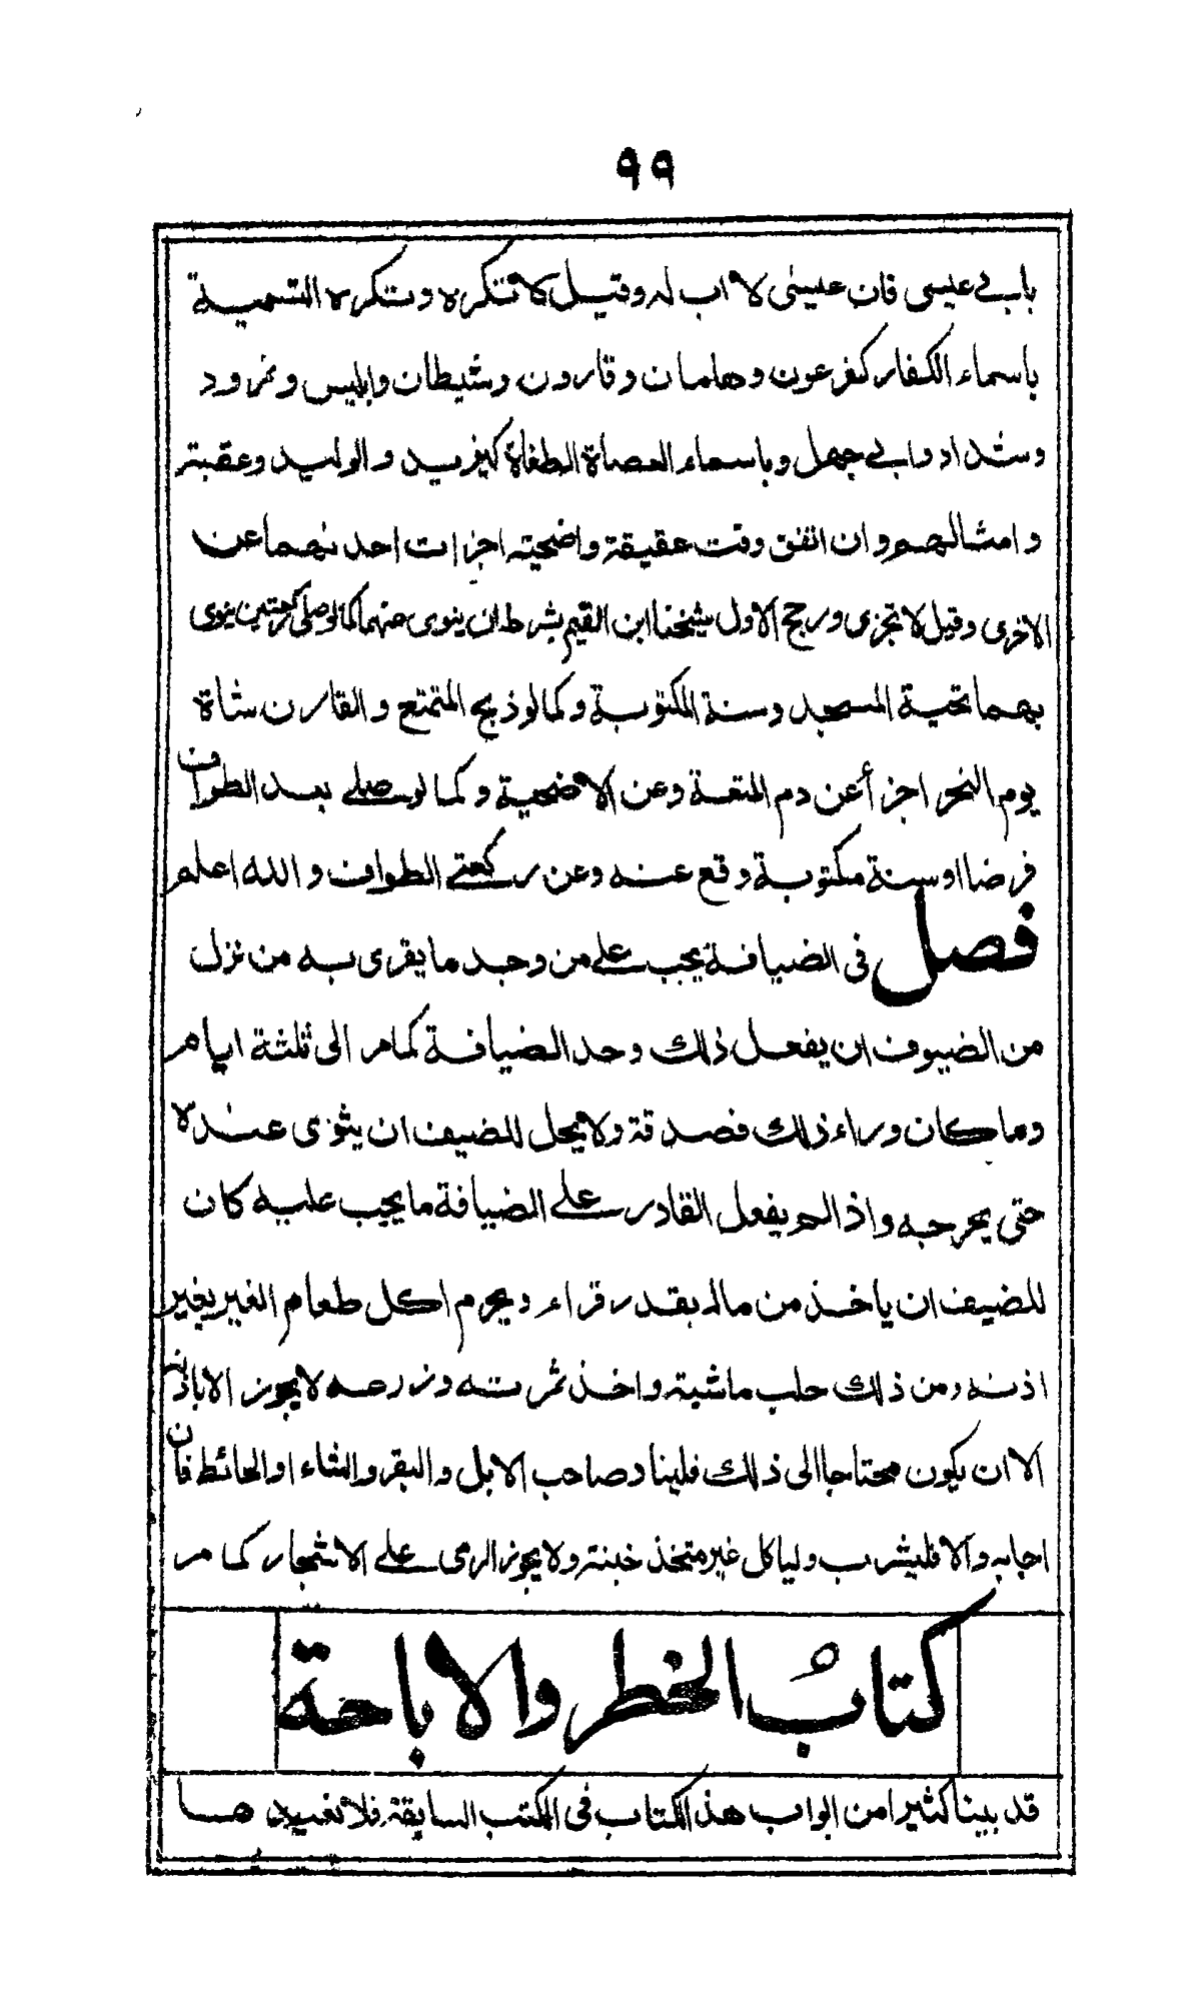 ٩٩
بابي عيسى فان عيسى لا اب له وقيل لا تكره وتكره التسمية
باسماء الكفار كفرعون وهامان وقارون وشيطان وابليس ونمرود
وشداد وابي جهل وباسماء العصاة الطغاة كيزيد والوليد وعقبة
وامثالهم وان اتفق وقت عقيقة واضحية اجزات احدٰهما عن
الاخرى وقيل لا تجزى ورجح الاول شيخنا ابن القيم بشرط ان ينوى عنهما كما لو صلى ركعتين ينوى
بهما تحية المسجد وسنة المكتوبة وكما لو ذبح المتمتع والقارن شاة
يوم النحر اجزأ عن دم المتعة وعن الاضحية وكما لو صلى بعد الطواف
فرضا او سنة مكتوبة وقع عنه وعن ركعتي الطواف والله اعلم
فصل في الضيافة يجب على من وجد ما يقرى به من نزل
من الضيوف ان يفعل ذلك وحد الضيافة كما مر الى ثلثة ايام
وما كان وراء ذلك فصدقة ولا يحل للضيف ان يثوى عنده
حتى يحرجه واذا لم يفعل القادر على الضيافة ما يجب عليه كان
للضيف ان ياخذ من ماله بقدر قراء ويحرم اكل طعام الغير بغير
اذنه ومن ذلك حلب ماشية واخذ ثمرته وزرعه لا يجوز الا باذنه
الا ان يكون محتاجا الى ذلك فليناد صاحب الابل والبقر والشاء او الحائط فان
اجابه والا فليشرب ولياكل غير متخذ خبنة ولا يجوز الرمى على الاشجار كما مر
كتاب الخطر والاباحة
قد بينا كثيرا من ابواب هذ الكتاب في الكتب السابقة فلا نعيدها